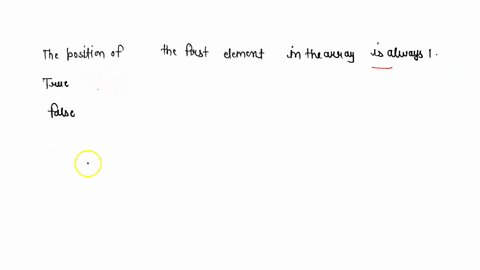 The position of the first element in the array is always 1.
True
false